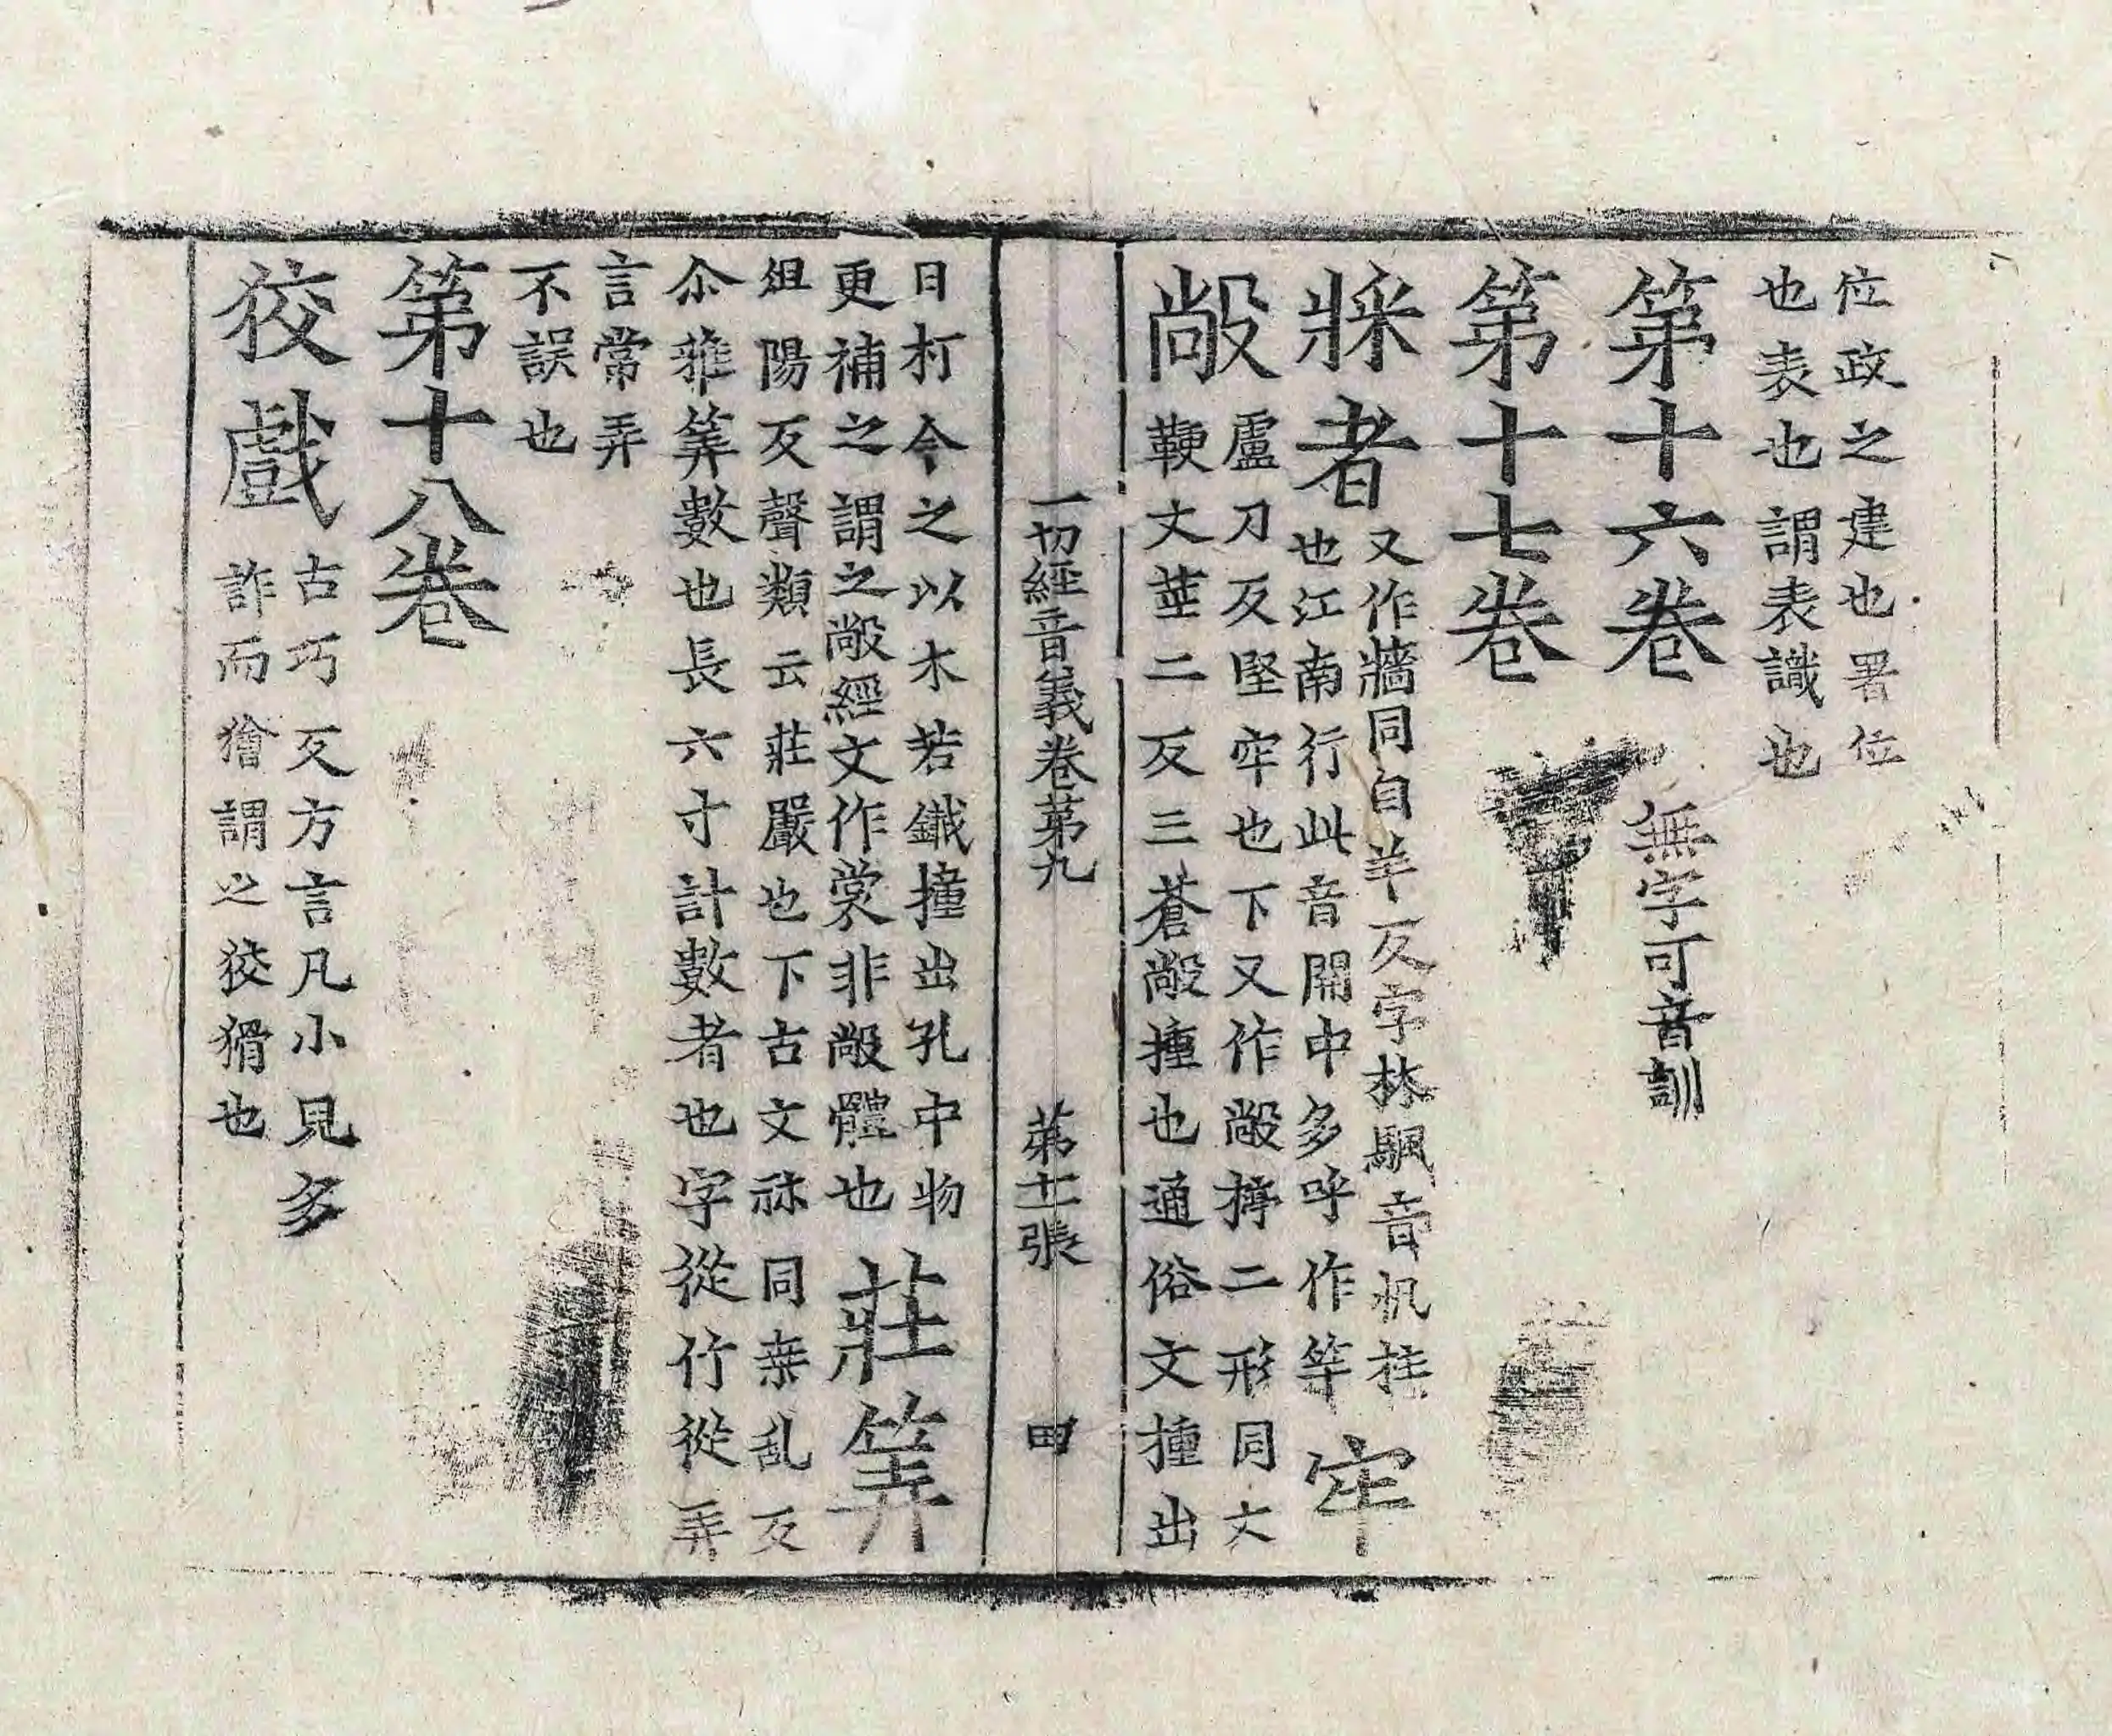 位政之建也署位
也表也謂表識也
第十六卷 無字可音訓
第十七卷
牀者 又作牆同自羊反字林駬音机柱
也江南行此音開中多呼作竿 牢
敞 盧刀反堅牢也下又作敞揨二形同丈
鞕丈莖二反三蒼敞揰也通俗文揰出
一切經音義卷第九 第十一張 田
曰朾今之以木若鐵撞出孔中物
更補之謂之敞經文作棠非敞體也 莊筭
俎陽反聲類云莊嚴也下古文祘同桒乱反
尒雅筭數也長六寸計數者也字從竹從弄
言常弄
不誤也
第十八卷
狡戲 古巧反方言凡小兒多
詐而獪謂之狡猾也